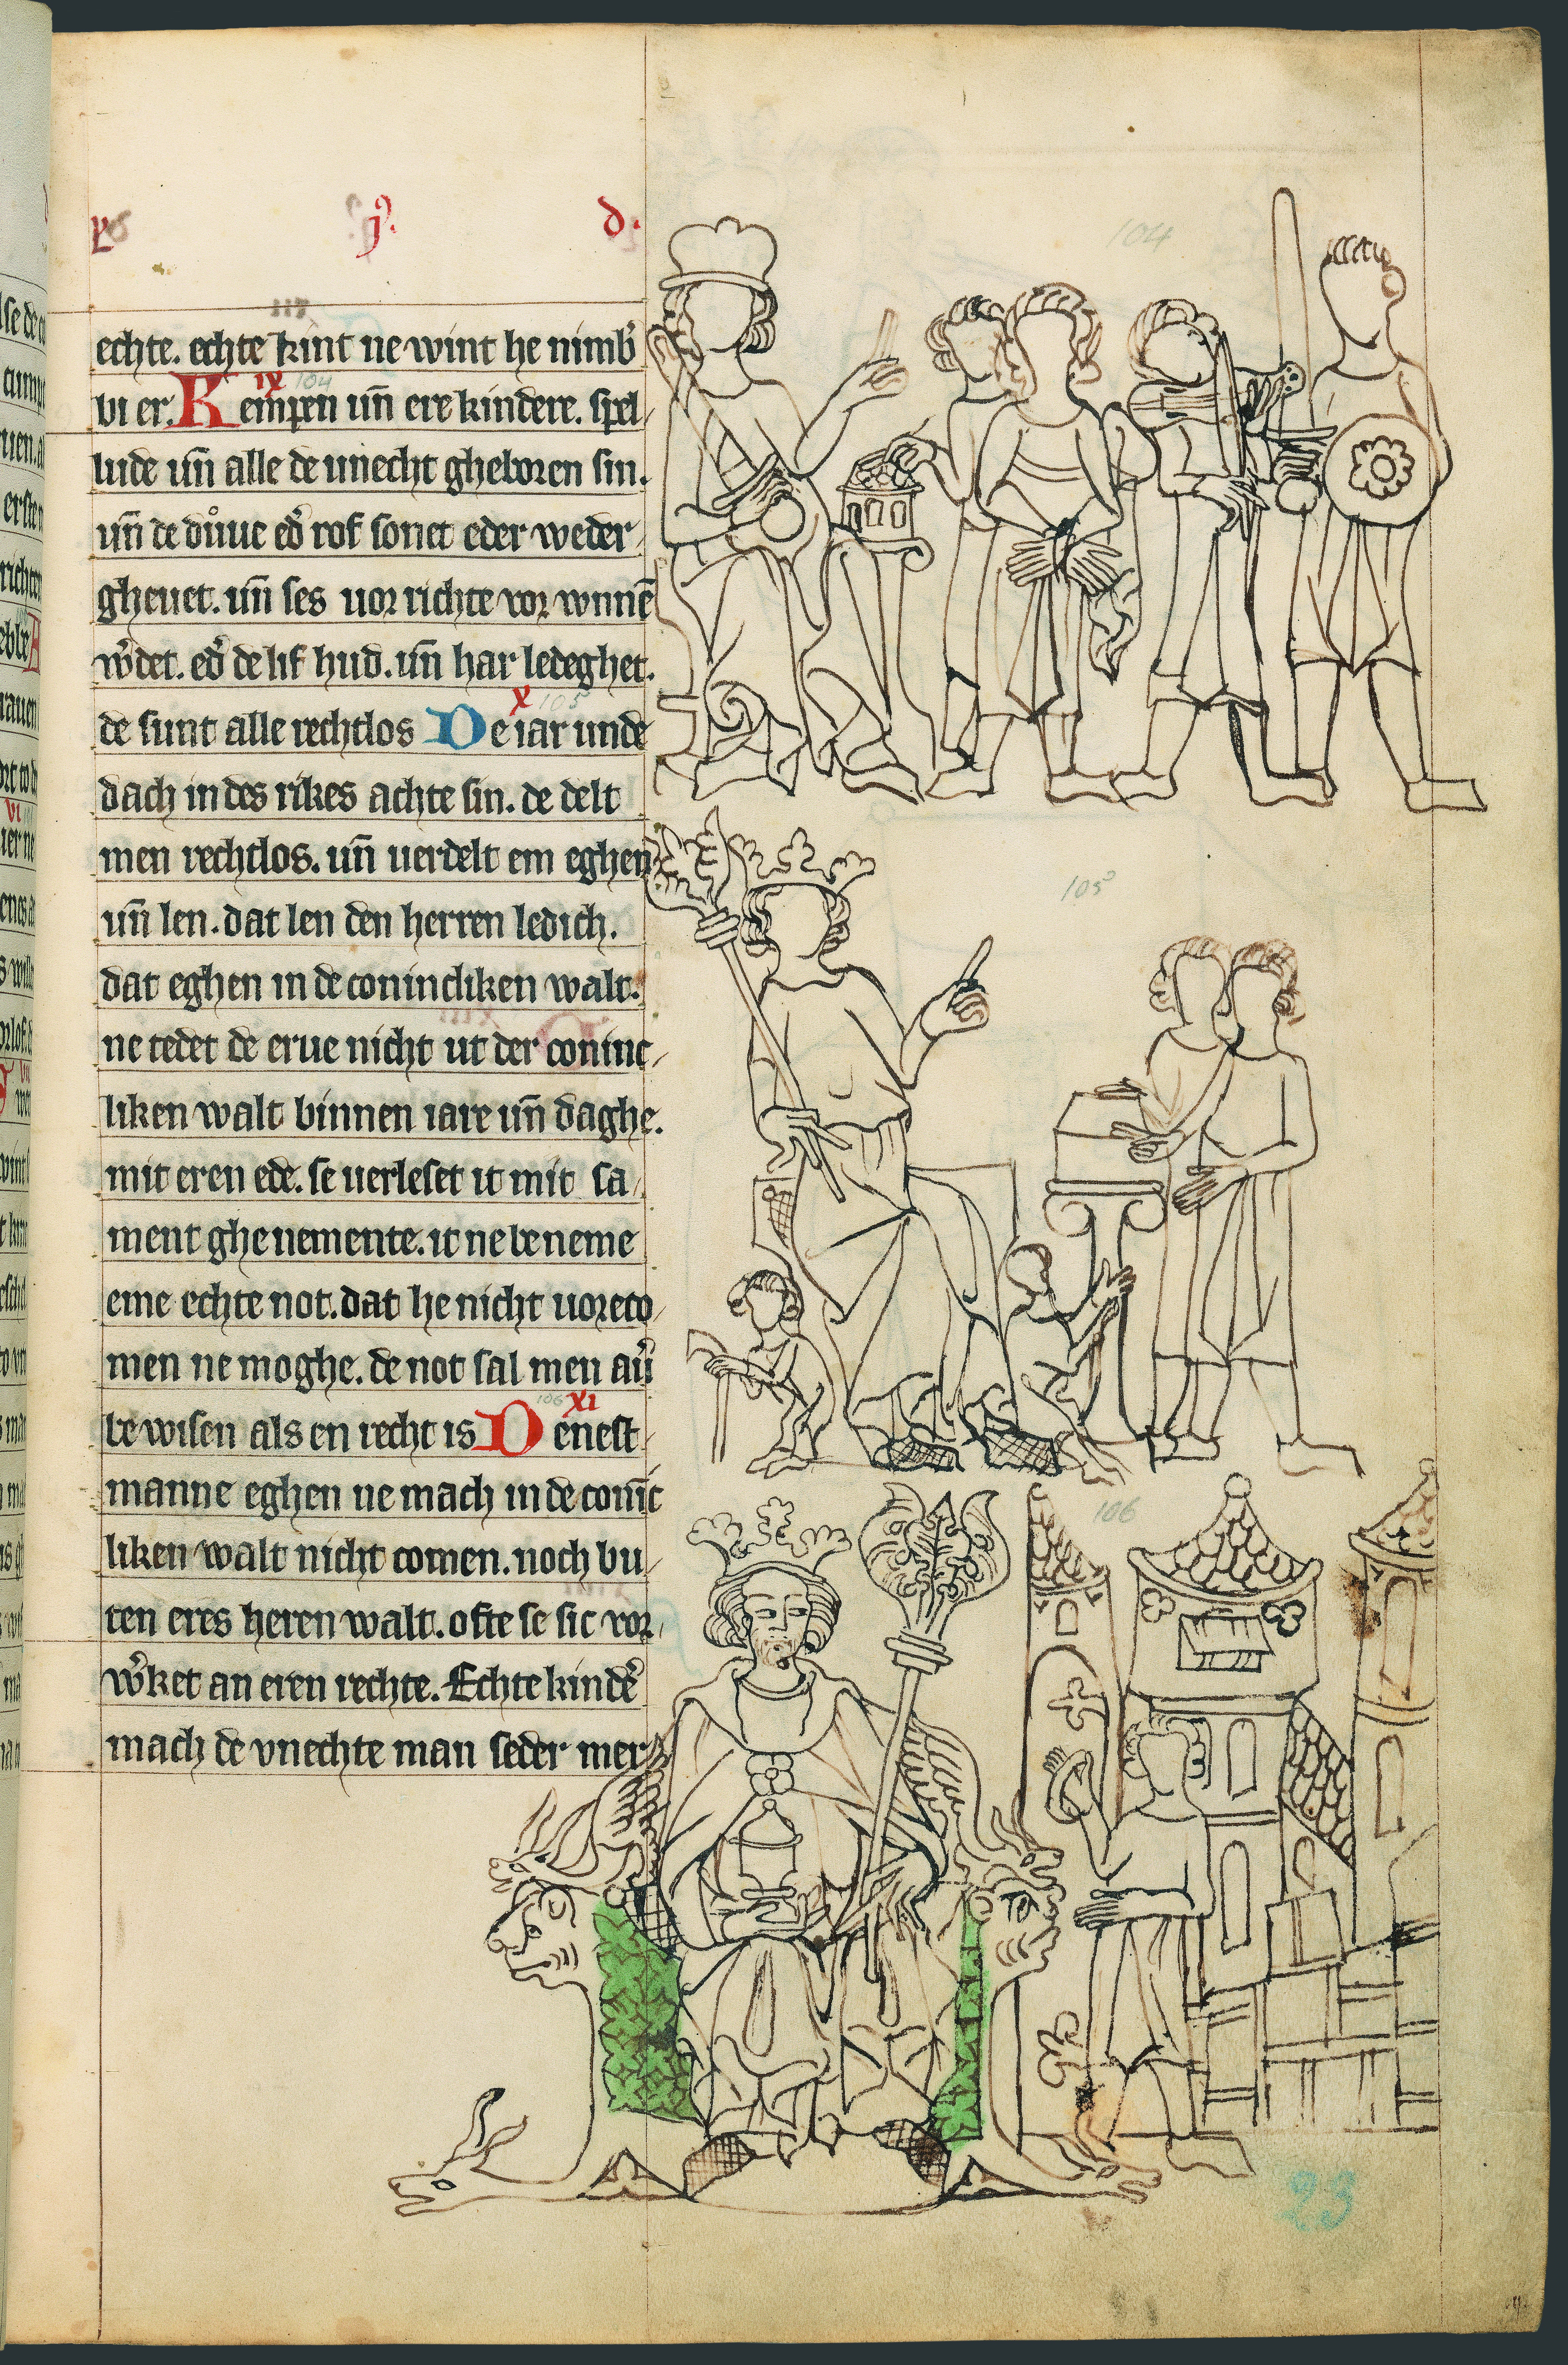 j. d.
echte. echte kint ne wint he nimb̉
vi er. Kempen un̄ ere kindere. spel
ix 104
lude un̄ alle de unecht gheboren sin.
un̄ de duͦue ed̉ rof sonet eder weder
gheuet. un̄ ses uor richte vor wnnē
w̉det. ed̉ de lif hud. un̄ har ledeghet.
de sunt alle rechtlos De iar unde
x 105
dach in des rikes achte sin. de delt
men rechtlos. un̄ uerdelt em eghen
un̄ len. dat len den herren ledich.
dat eghen in de conincliken walt.
ne tedet de erue nicht ut der coninc
liken walt binnen iare un̄ daghe.
mit eren ede. se uerleset it mit sa
ment ghenemente. it ne beneme
eme echte not. dat he nicht uoreco
men ne moghe. de not sal men aủ
bewisen als en recht is Denest
106 xi
manne eghen ne mach in de conīc
liken walt nicht comen. noch bu
ten eres heren walt. ofte se sic vor
w̉ket an eren rechte. Echte kind̉e
mach de vnechte man seder mer
104
105
106
23